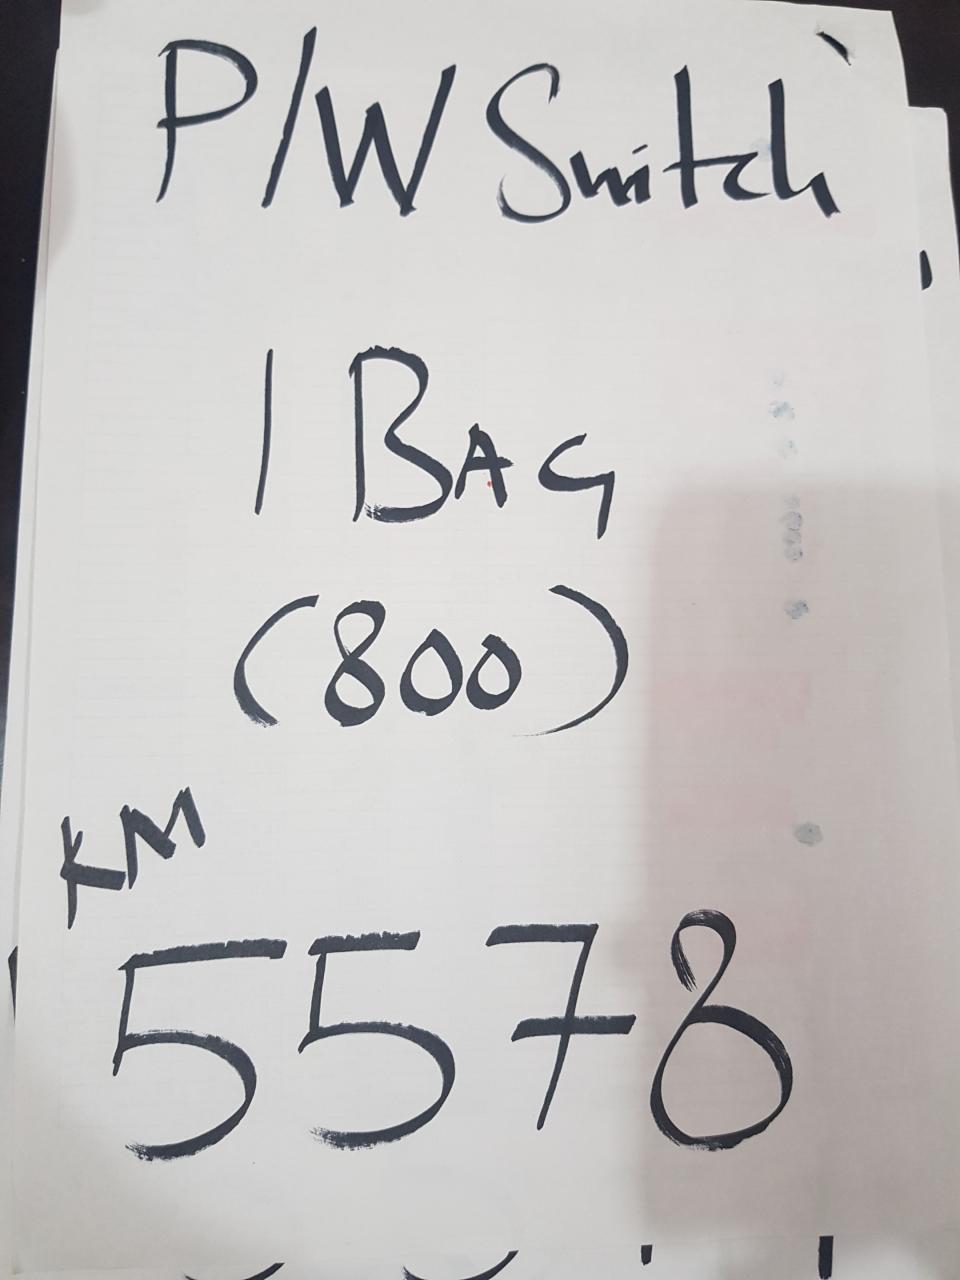 P/W Switch
1 BAG
(800)
KM
5578